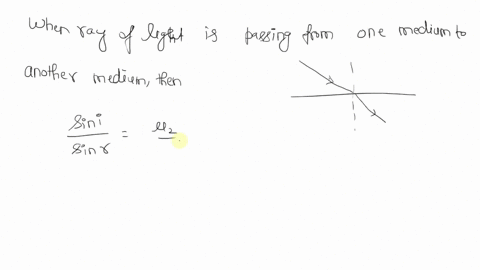 When ray of light is passing from one medium to
another medium, then
sin i / sin r = μ₂ /